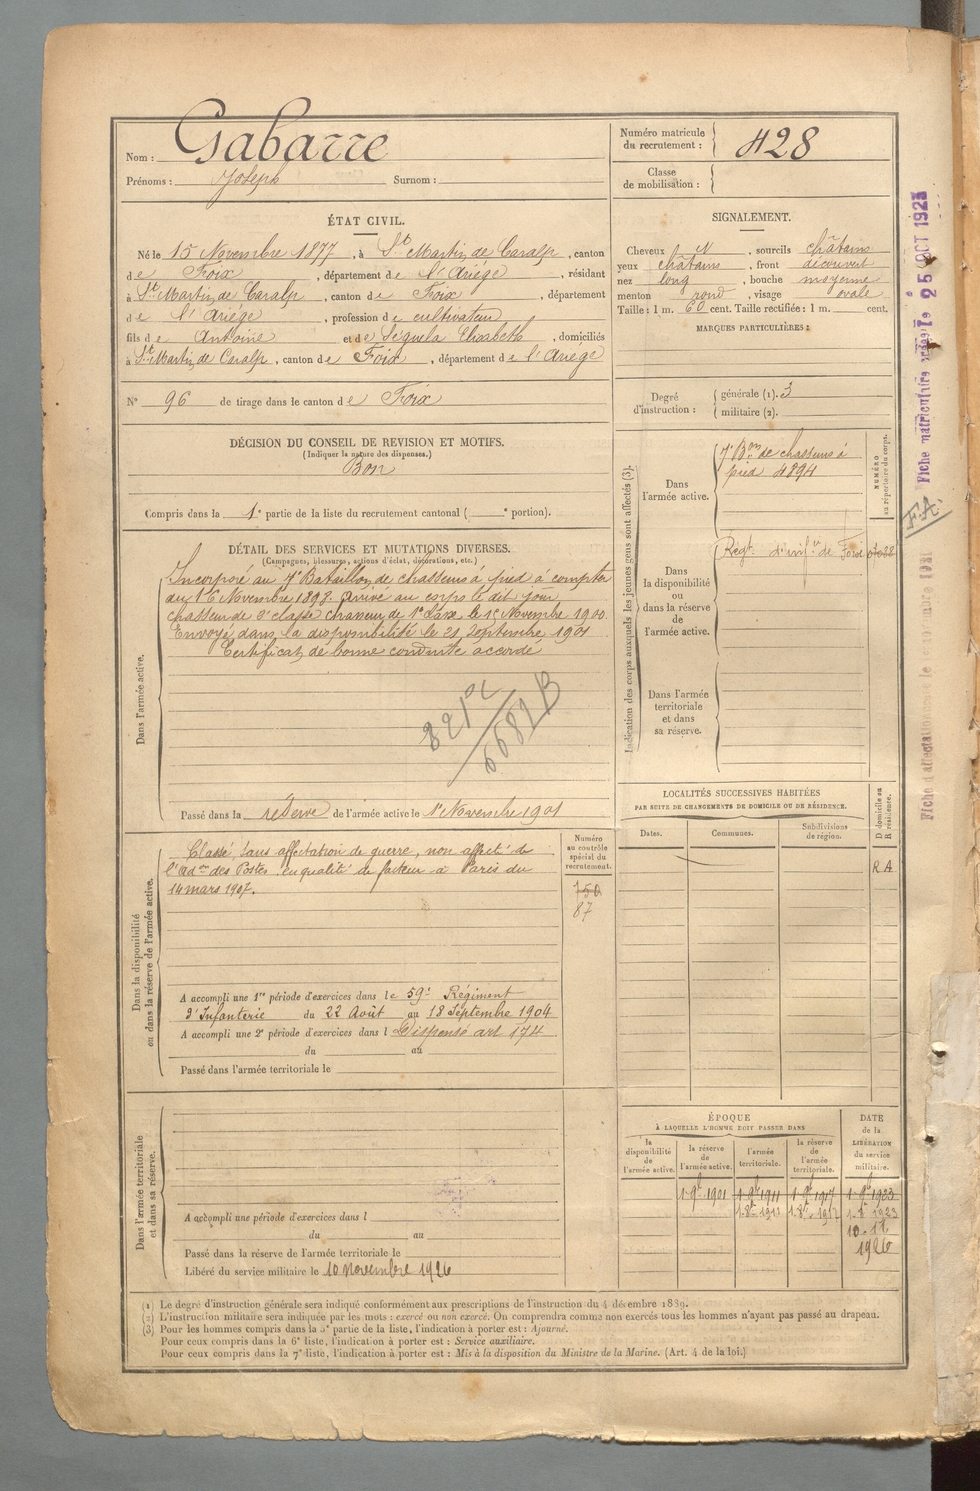 Nom : Gabarre
Prénoms : Joseph Surnom :
Numéro matricule du recrutement : 428
Classe de mobilisation :
ÉTAT CIVIL.
Né le 15 Novembre 1877, à St Martin de Caralp, canton
de Foix, département de l'Ariège, résidant
à St Martin de Caralp, canton de Foix, département
de l'Ariège, profession de cultivateur
fils de Antoine et de Séguéla Elisabeth, domiciliés
à St Martin de Caralp, canton de Foix, département de l'Ariège
N° 96 de tirage dans le canton de Foix
SIGNALEMENT.
Cheveux N, sourcils châtains
yeux châtains, front découvert
nez long, bouche moyenne
menton rond, visage ovale
Taille : 1 m. 60 cent. Taille rectifiée : 1 m. cent.
MARQUES PARTICULIÈRES :
Degré d'instruction : générale (1). 3
militaire (2).
DÉCISION DU CONSEIL DE REVISION ET MOTIFS.
(Indiquer la nature des dispenses.)
Bon
Compris dans la 1e partie de la liste du recrutement cantonal ( e portion).
DÉTAIL DES SERVICES ET MUTATIONS DIVERSES.
(Campagnes, blessures, actions d'éclat, décorations, etc.)
Dans l'armée active.
Incorporé au 7e Bataillon de chasseurs à pied à compter
du 16 Novembre 1898. Arrivé au corps le dit jour
chasseur de 2e classe chasseur de 1e classe le 1e Novembre 1900
Envoyé dans la disponibilité le 21 Septembre 1901
Certificat de bonne conduite accordé
Passé dans la réserve de l'armée active le 1e Novembre 1901
Indication des corps auxquels les jeunes gens sont affectés (3).
NUMÉRO au répertoire du corps.
Dans l'armée active.
7e Bon de chasseurs à
pied 4894
Dans la disponibilité ou dans la réserve de l'armée active.
Régt. d'infie de Foix
Dans l'armée territoriale et dans sa réserve.
LOCALITÉS SUCCESSIVES HABITÉES
PAR SUITE DE CHANGEMENTS DE DOMICILE OU DE RÉSIDENCE.
Dates. Communes. Subdivisions de région. D domicile ou R résidence.
R A
Dans la disponibilité ou dans la réserve de l'armée active.
Numéro au contrôle spécial du recrutement.
750
87
Classé, sans affectation de guerre, non affecté de
l'adon des Postes en qualité de facteur à Paris du
14 mars 1907.
A accompli une 1re période d'exercices dans le 59e Régiment
d'Infanterie du 22 Août au 18 Septembre 1904
A accompli une 2e période d'exercices dans l Dispensé art 174
du au
Passé dans l'armée territoriale le
Dans l'armée territoriale et dans sa réserve.
A accompli une période d'exercices dans l
du au
Passé dans la réserve de l'armée territoriale le
Libéré du service militaire le 10 novembre 1926
ÉPOQUE
À LAQUELLE L'HOMME DOIT PASSER DANS
la disponibilité de l'armée active.
la réserve de l'armée active.
l'armée territoriale.
la réserve de l'armée territoriale.
DATE de la LIBÉRATION du service militaire.
1 9bre 1901 1 9bre 1911 1 9bre 1917 1 9bre 1923
10.11
1926
(1) Le degré d'instruction générale sera indiqué conformément aux prescriptions de l'instruction du 4 décembre 1889.
(2) L'instruction militaire sera indiquée par les mots : exercé ou non exercé. On comprendra comme non exercés tous les hommes n'ayant pas passé au drapeau.
(3) Pour les hommes compris dans la 5e partie de la liste, l'indication à porter est : Ajourné.
Pour ceux compris dans la 6e liste, l'indication à porter est : Service auxiliaire.
Pour ceux compris dans la 7e liste, l'indication à porter est : Mis à la disposition du Ministre de la Marine. (Art. 4 de la loi.)
Fiche matriculaire le 25 OCT 1923
F.A.